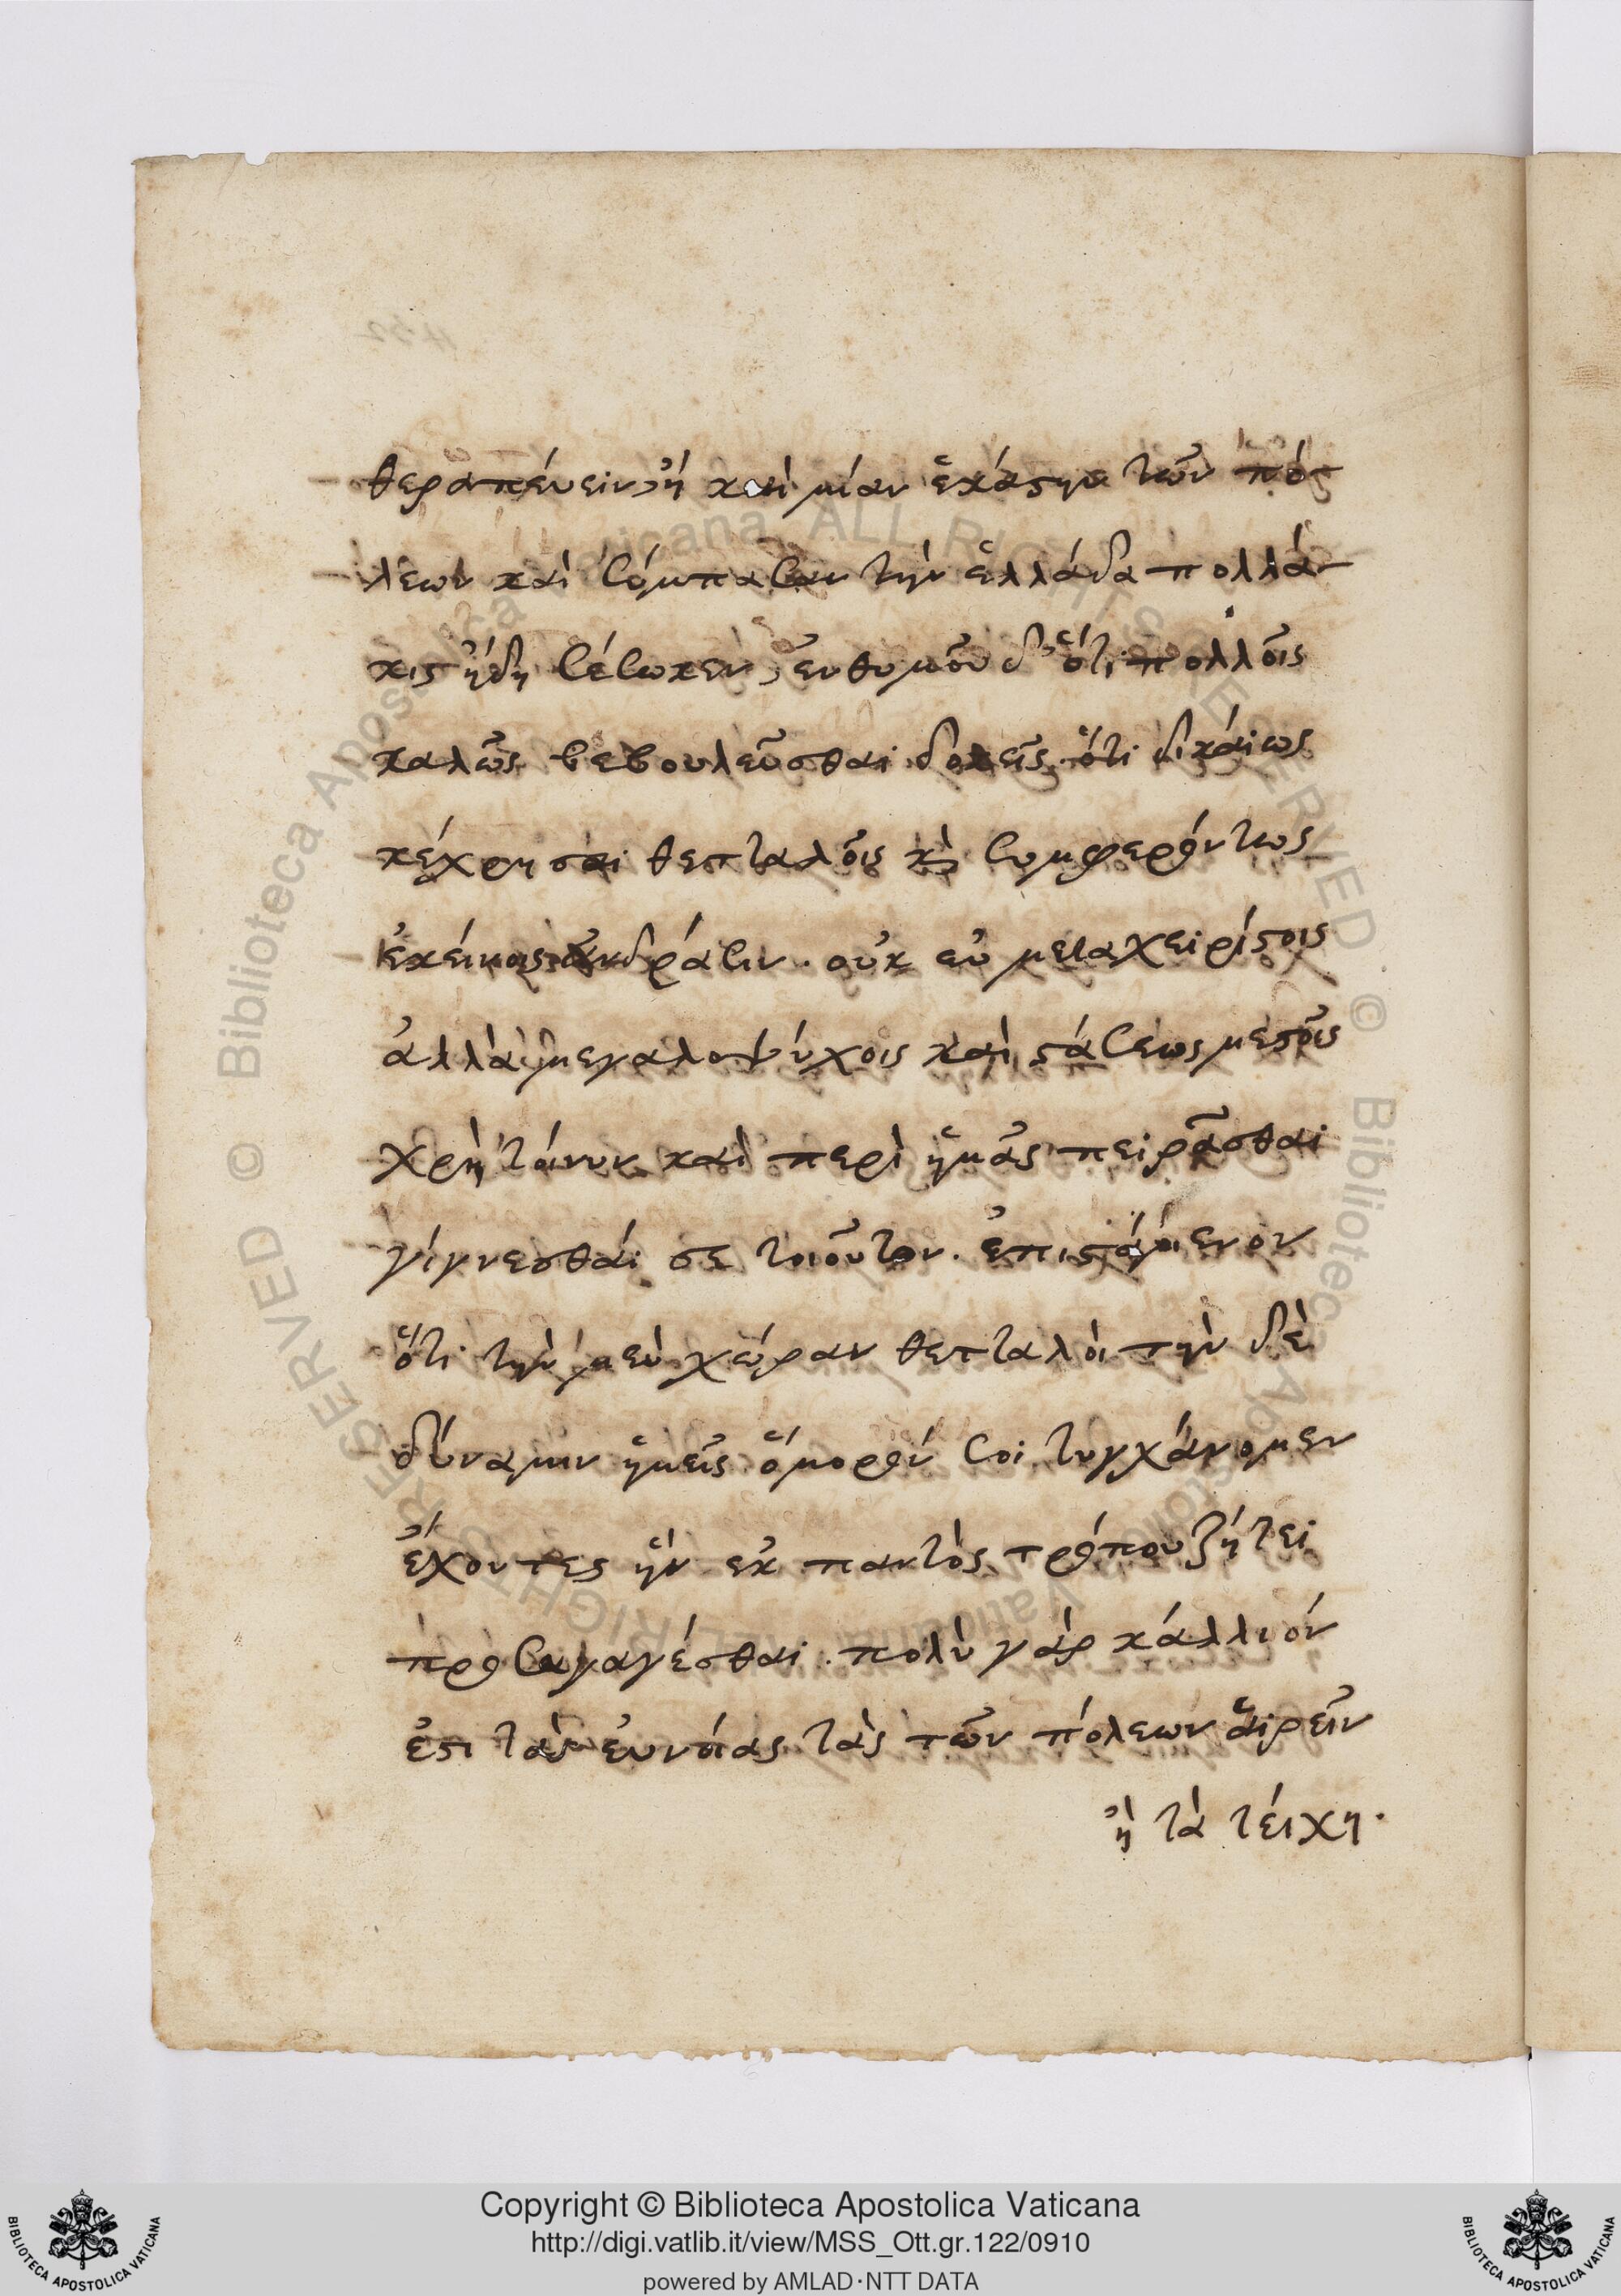 θεραπεύειν, ἢ καὶ μίαν ἑκάστην τῶν πό-
λεων καὶ σύμπασαν τὴν ἑλλάδα πολλά-
κις ἤδη σέσωκεν, ἐνθυμοῦ δ' ὅτι πολλοῖς
καλῶς βεβουλεῦσθαι δοκεῖς. ὅτι δικαίως
κέχρησαι θετταλοῖς κ συμφερόντως
ἐκείνοις ἀνδράσιν. οὐκ εὐμεταχειρίστοις
ἀλλὰ μεγαλοψύχοις καὶ στάσεως μεστοῖς
χρὴ τοίνυν καὶ περὶ ἡμᾶς πειρᾶσθαι
γίγνεσθαί σε τοιοῦτον. ἐπιστάμενον
ὅτι τὴν μεν χώραν θετταλοὶ τὴν δὲ
δύναμιν ἡμεῖς ὅμορόν σοι τυγχάνομεν
ἔχοντες ἣν ἐκ παντὸς τρόπου ζήτει
προσαγαγέσθαι. πολὺ γὰρ κάλλιόν
ἐστι τὰς ἐυνοίας τὰς τῶν πόλεων αἱρεῖν
ἢ τὰ τείχη.
Copyright © Biblioteca Apostolica Vaticana
http://digi.vatlib.it/view/MSS_Ott.gr.122/0910
powered by AMLAD·NTT DATA
BIBLIOTECA APOSTOLICA VATICANA
BIBLIOTECA APOSTOLICA VATICANA